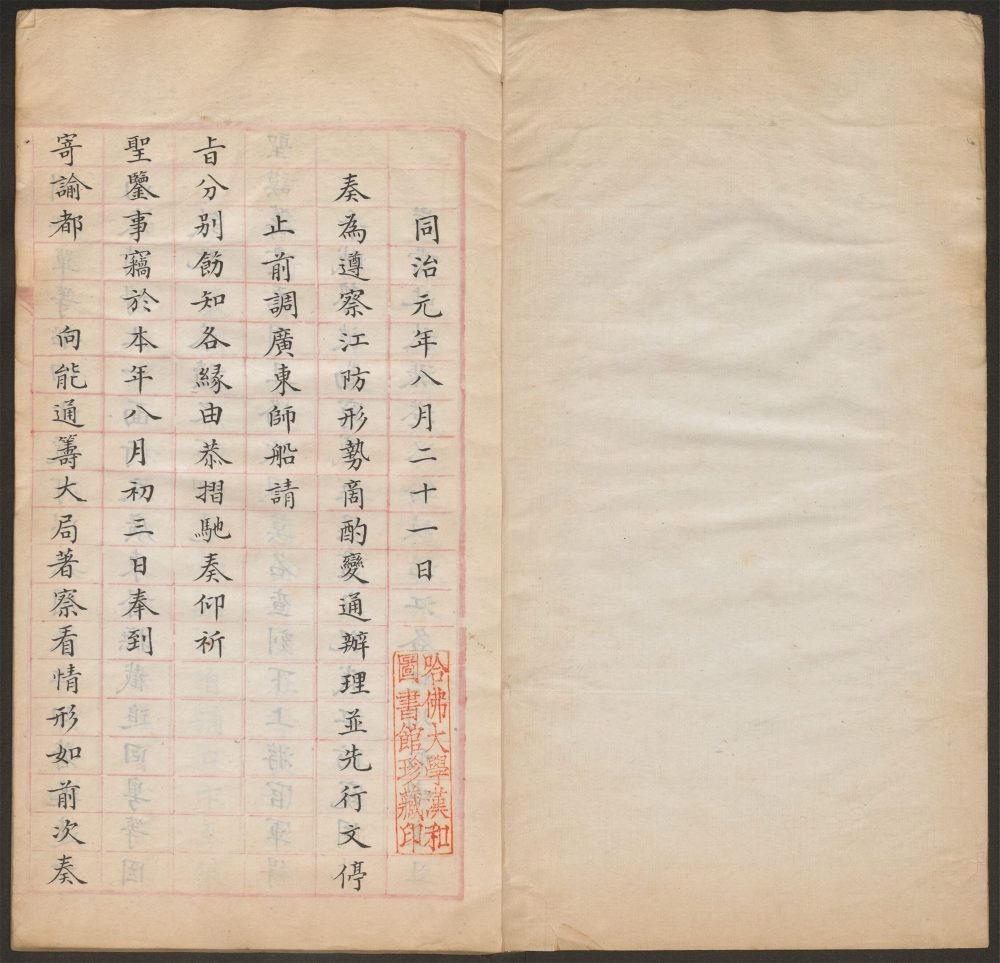 同治元年八月二十一日
奏為遵察江防形勢啇酌變通辦理並先行文停
止前調廣東師船請
旨分別飭知各緣由恭摺馳奏仰祈
聖鑒事竊於本年八月初三日奉到
寄諭都 向能通籌大局著察看情形如前次奏
哈佛大學漢和
圖書館珍藏印